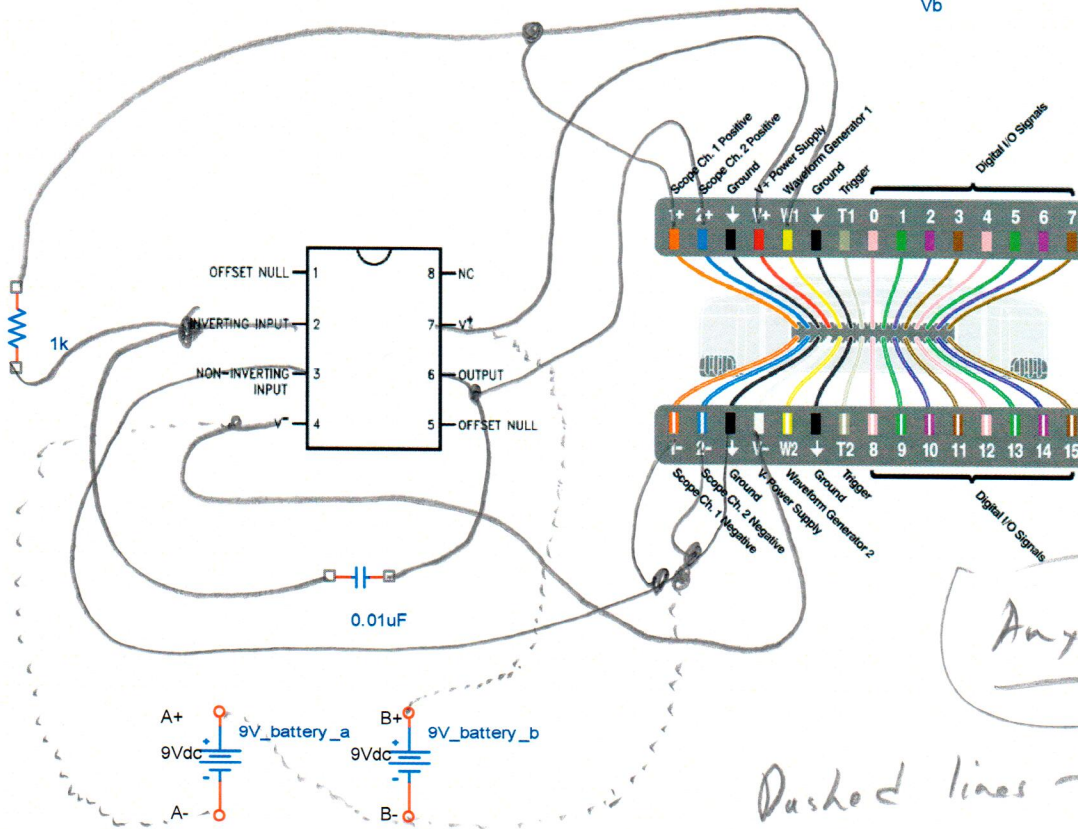 Vb
Scope Ch. 1 Positive
Scope Ch. 2 Positive
Ground
V+ Power Supply
Waveform Generator 1
Ground
Trigger
Digital I/O Signals
1+ 2+ V+ W1 T1 0 1 2 3 4 5 6 7
OFFSET NULL 1
8 NC
INVERTING INPUT 2
7 V+
1k
NON-INVERTING
INPUT
3
6 OUTPUT
V- 4
5 OFFSET NULL
1- 2- V- W2 T2 8 9 10 11 12 13 14 15
Scope Ch. 1 Negative
Scope Ch. 2 Negative
Ground
V- Power Supply
Waveform Generator 2
Ground
Trigger
Digital I/O Signals
0.01uF
Any
A+
9V_battery_a
B+
9V_battery_b
9Vdc
9Vdc
+
-
+
-
A-
B-
Dashed lines -